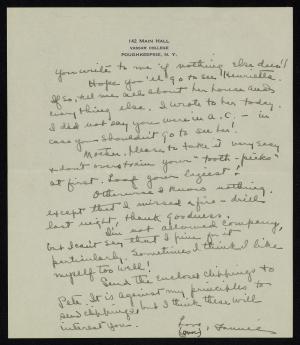 142 MAIN HALL
VASSAR COLLEGE
POUGHKEEPSIE, N. Y.
You write to me if nothing else does!!
Hope you'll go to see Henrietta.
If so, tell me all about her house and
everything else. I wrote to her today.
I did not say you were in A.C. – in
case you shouldn't go to see her!
Mother, please to take it very easy
& don't overstrain your "tooth-picks"
at first. Loaf your laziest!
Otherwise I know nothing
except that I missed a fire-drill
last night, thank goodness.
I'm not allowed company,
but I can't say that I pine for it
particularly. Sometimes I think I like
myself too well!
Send the enclosed clippings to
Pete. It is against my principles to
send clippings, but I think these will
interest you.
Love,
Fannie